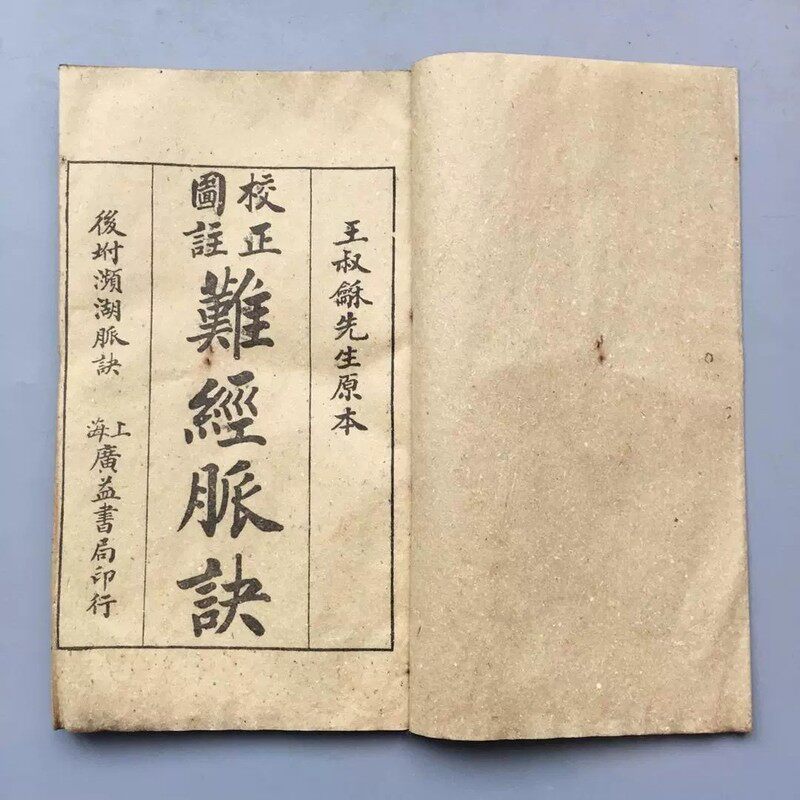 王叔龢先生原本
校正
圖註
難經脈訣
後坿瀕湖脈訣
上海廣益書局印行